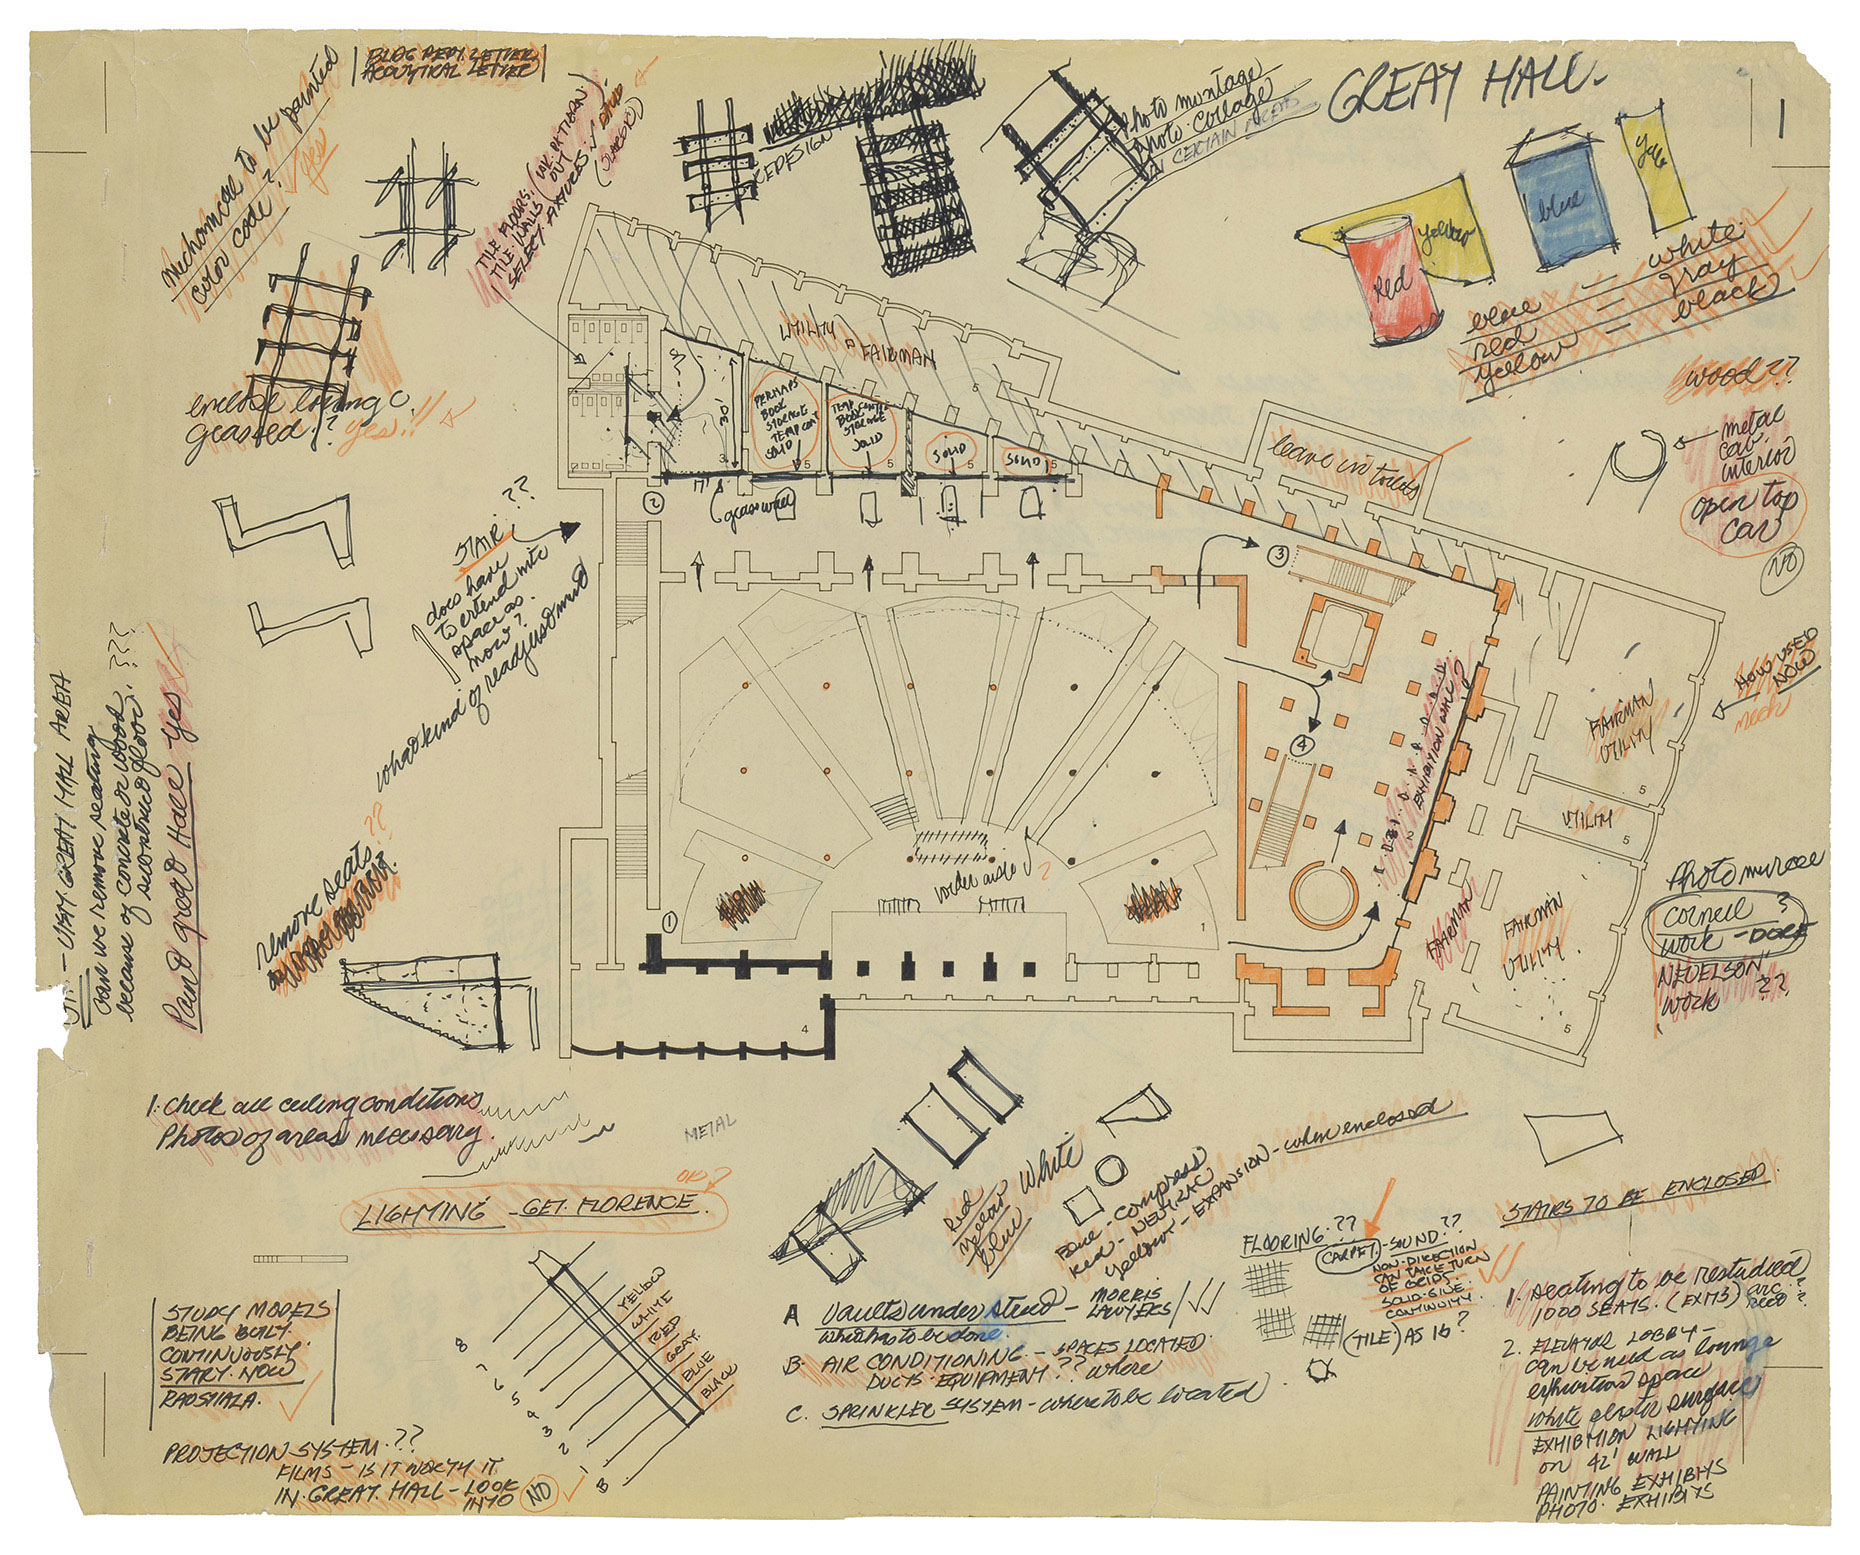 BLDG DEPT. LETTER
ACOUSTICAL LETTER
GREAT HALL.
1
Mechanical to be painted
color code?
yes
TILE FLOORS.
TILE WALLS
SELECT FIXTURES
REDESIGN
Photo montage
photo-collage
CERTAIN
Red
yellow
blue
yell
blue — white
red — gray
yellow = black
wood??
metal
car
interior
open top
car
NO
enclose lounge
glassed? yes!!
UTILITY
FAIRMAN
PERHAPS
BOOK
STORAGE
SOLID
TEMP
STORAGE
SOLID
SOLID
SOLID
30'
17'
3
5
5
5
5
5
glass wall
leave in toilets
STAIR??
does have
to extend into
space as
now?
what kind of readjustment
2
3
4
1
EXHIBITION WALL?
FAIRMAN
UTILITY
5
UTILITY
5
FAIRMAN
FAIRMAN
UTILITY
5
HOW USED
NOW
mech
JIM — VISIT GREAT HALL AREA
can we remove seating
because of concrete or wood
of
floor. ???
Paint great Hall yes
remove seats ??
wider aisle ?
1
4
Photo murals
cornell ?
work - DORE
NEVELSON
work ??
1. Check all ceiling conditions
Photos of areas necessary.
METAL
OK?
LIGHTING — GET FLORENCE.
STUDY MODELS
BEING BUILT.
CONTINUOUSLY.
START NOW
PROJECTION SYSTEM.??
FILMS — IS IT WORTH IT
IN GREAT HALL — LOOK
INTO
NO
YELLOW
WHITE
RED
GRAY.
BLUE
BLACK
8
7
6
5
4
3
2
1
B
Red
yellow
blue
white
Blue - compress
Red - NEUTRAL
yellow - EXPANSION - when enclosed
A Vaults under street — MORRIS
LAWYERS
What has to be done.
B. AIR CONDITIONING. — SPACES LOCATED.
DUCTS-EQUIPMENT?? where
C. SPRINKLER SYSTEM - where to be located
FLOORING.??
CARPET. - SOUND.??
NON-DIRECTION
CAN TAKE TURN
OF GRIDS.
SOLID-GIVE
CONTINUITY.
(TILE) AS 16?
STAIRS TO BE ENCLOSED.
1. seating to be restudied
1000 SEATS. (EXITS)
2. ELEVATOR LOBBY —
can be used as lounge
exhibition space
white plaster surface
EXHIBITION LIGHTING
on 42' WALL
PAINTING EXHIBITS
PHOTO. EXHIBITS